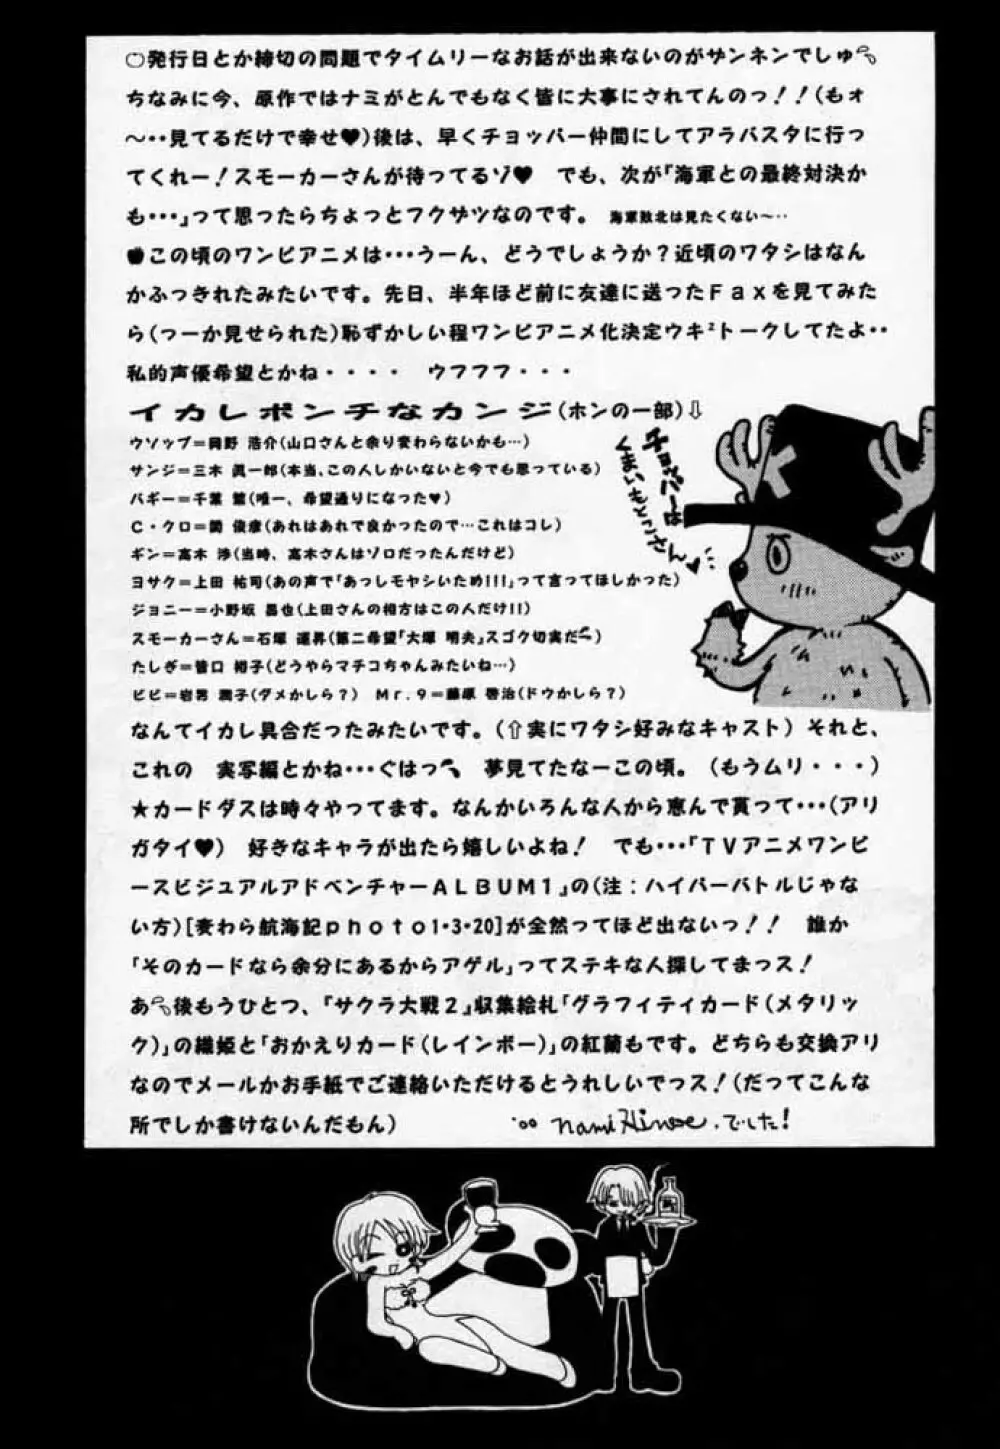 ○発行日とか締切の問題でタイムリーなお話が出来ないのがザンネンでしゅ
ちなみに今、原作ではナミがとんでもなく皆に大事にされてんのっ!!(もォ
〜‥見てるだけで幸せ♥)後は、早くチョッパー仲間にしてアラバスタに行っ
てくれー!スモーカーさんが待ってるゾ♥ でも、次が『海軍との最終対決か
も・・・』って思ったらちょっとフクザツなのです。 海軍敗北は見たくない〜‥
●この頃のワンピアニメは・・・うーん、どうでしょうか?近頃のワタシはなん
かふっきれたみたいです。先日、半年ほど前に友達に送ったFaxを見てみた
ら(つーか見せられた)恥ずかしい程ワンピアニメ化決定ウキ²トークしてたよ‥
私的声優希望とかね・・・・ ウフフフ・・・
イカレポンチなカンジ(ホンの一部)⇩
ウソップ=岡野 浩介(山口さんと余り変わらないかも…)
サンジ=三木 眞一郎(本当、この人しかいないと今でも思っている)
バギー=千葉 繁(唯一、希望通りになった♥)
C・クロ=関 俊彦(あれはあれで良かったので…これはコレ)
ギン=高木 渉(当時、高木さんはゾロだったんだけど)
ヨサク=上田 祐司(あの声で「あっしモヤシいため!!!」って言ってほしかった)
ジョニー=小野坂 昌也(上田さんの相方はこの人だけ!!)
スモーカーさん=石塚 運昇(第二希望「大塚 明夫」スゴク切実だー)
たしぎ=皆口 裕子(どうやらマチコちゃんみたいね…)
ビビ=岩男 潤子(ダメかしら?) Mr.9=藤原 啓治(ドウかしら?)
チョッパーは
くまいもとこさん♥
なんてイカレ具合だったみたいです。(⇧実にワタシ好みなキャスト)それと、
これの 実写編とかね・・・ぐはっ 夢見てたなーこの頃。(もうムリ・・・)
★カードダスは時々やってます。なんかいろんな人から恵んで貰って・・・(アリ
ガタイ♥) 好きなキャラが出たら嬉しいよね! でも・・・『TVアニメワンピ
ースビジュアルアドベンチャーALBUM1』の(注:ハイパーバトルじゃな
い方)[麦わら航海記photo1・3・20]が全然ってほど出ないっ!! 誰か
「そのカードなら余分にあるからアゲル」ってステキな人探してまっス!
あ 後もうひとつ、『サクラ大戦2』収集絵札「グラフィティカード(メタリッ
ク)」の織姫と「おかえりカード(レインボー)」の紅蘭もです。どちらも交換アリ
なのでメールかお手紙でご連絡いただけるとうれしいでっス!(だってこんな
所でしか書けないんだもん) Nami Hinose.でした!